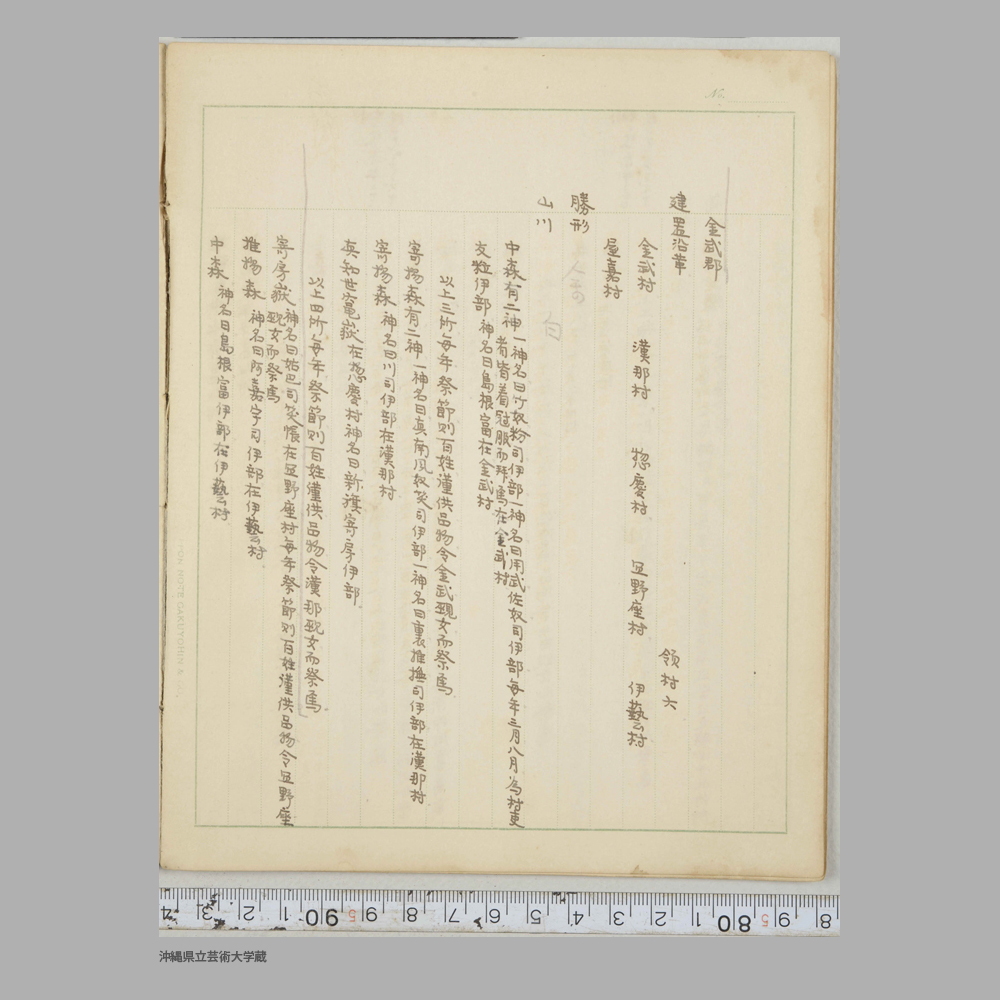 No.
金武郡
建置沿革
領村六
金武村 漢那村 惣慶村 宜野座村 伊藝村
屋嘉村
勝形
山川
中森有二神 一神名曰竹奴粉司伊部一神名曰用武佐奴司伊部每年三月八月為村吏
者皆着冠服而拜焉在金武村
支粒伊部 神名曰島根富在金武村
以上三所每年祭節則百姓謹供品物令金武覡女而祭焉
寄揚森有二神 一神名曰真南風奴笑司伊部一神名曰裏推撫司伊部在漢那村
寄揚森 神名曰川司伊部在漢那村
英知世竃嶽 在惣慶村神名曰新護寄房伊部
以上四所每年祭節則百姓謹供品物令漢那覡女而祭焉
寄房嶽 神名曰姑巴司笑悵在宜野座村每年祭節則百姓謹供品物令宜野座
覡女而祭焉
推揚森 神名曰阿嘉字司伊部在伊藝村
中森 神名曰島根富伊部在伊藝村
4 3 2 1 90 9 8 7 6 5 4 3 2 1 80 9 8
沖縄県立芸術大学蔵